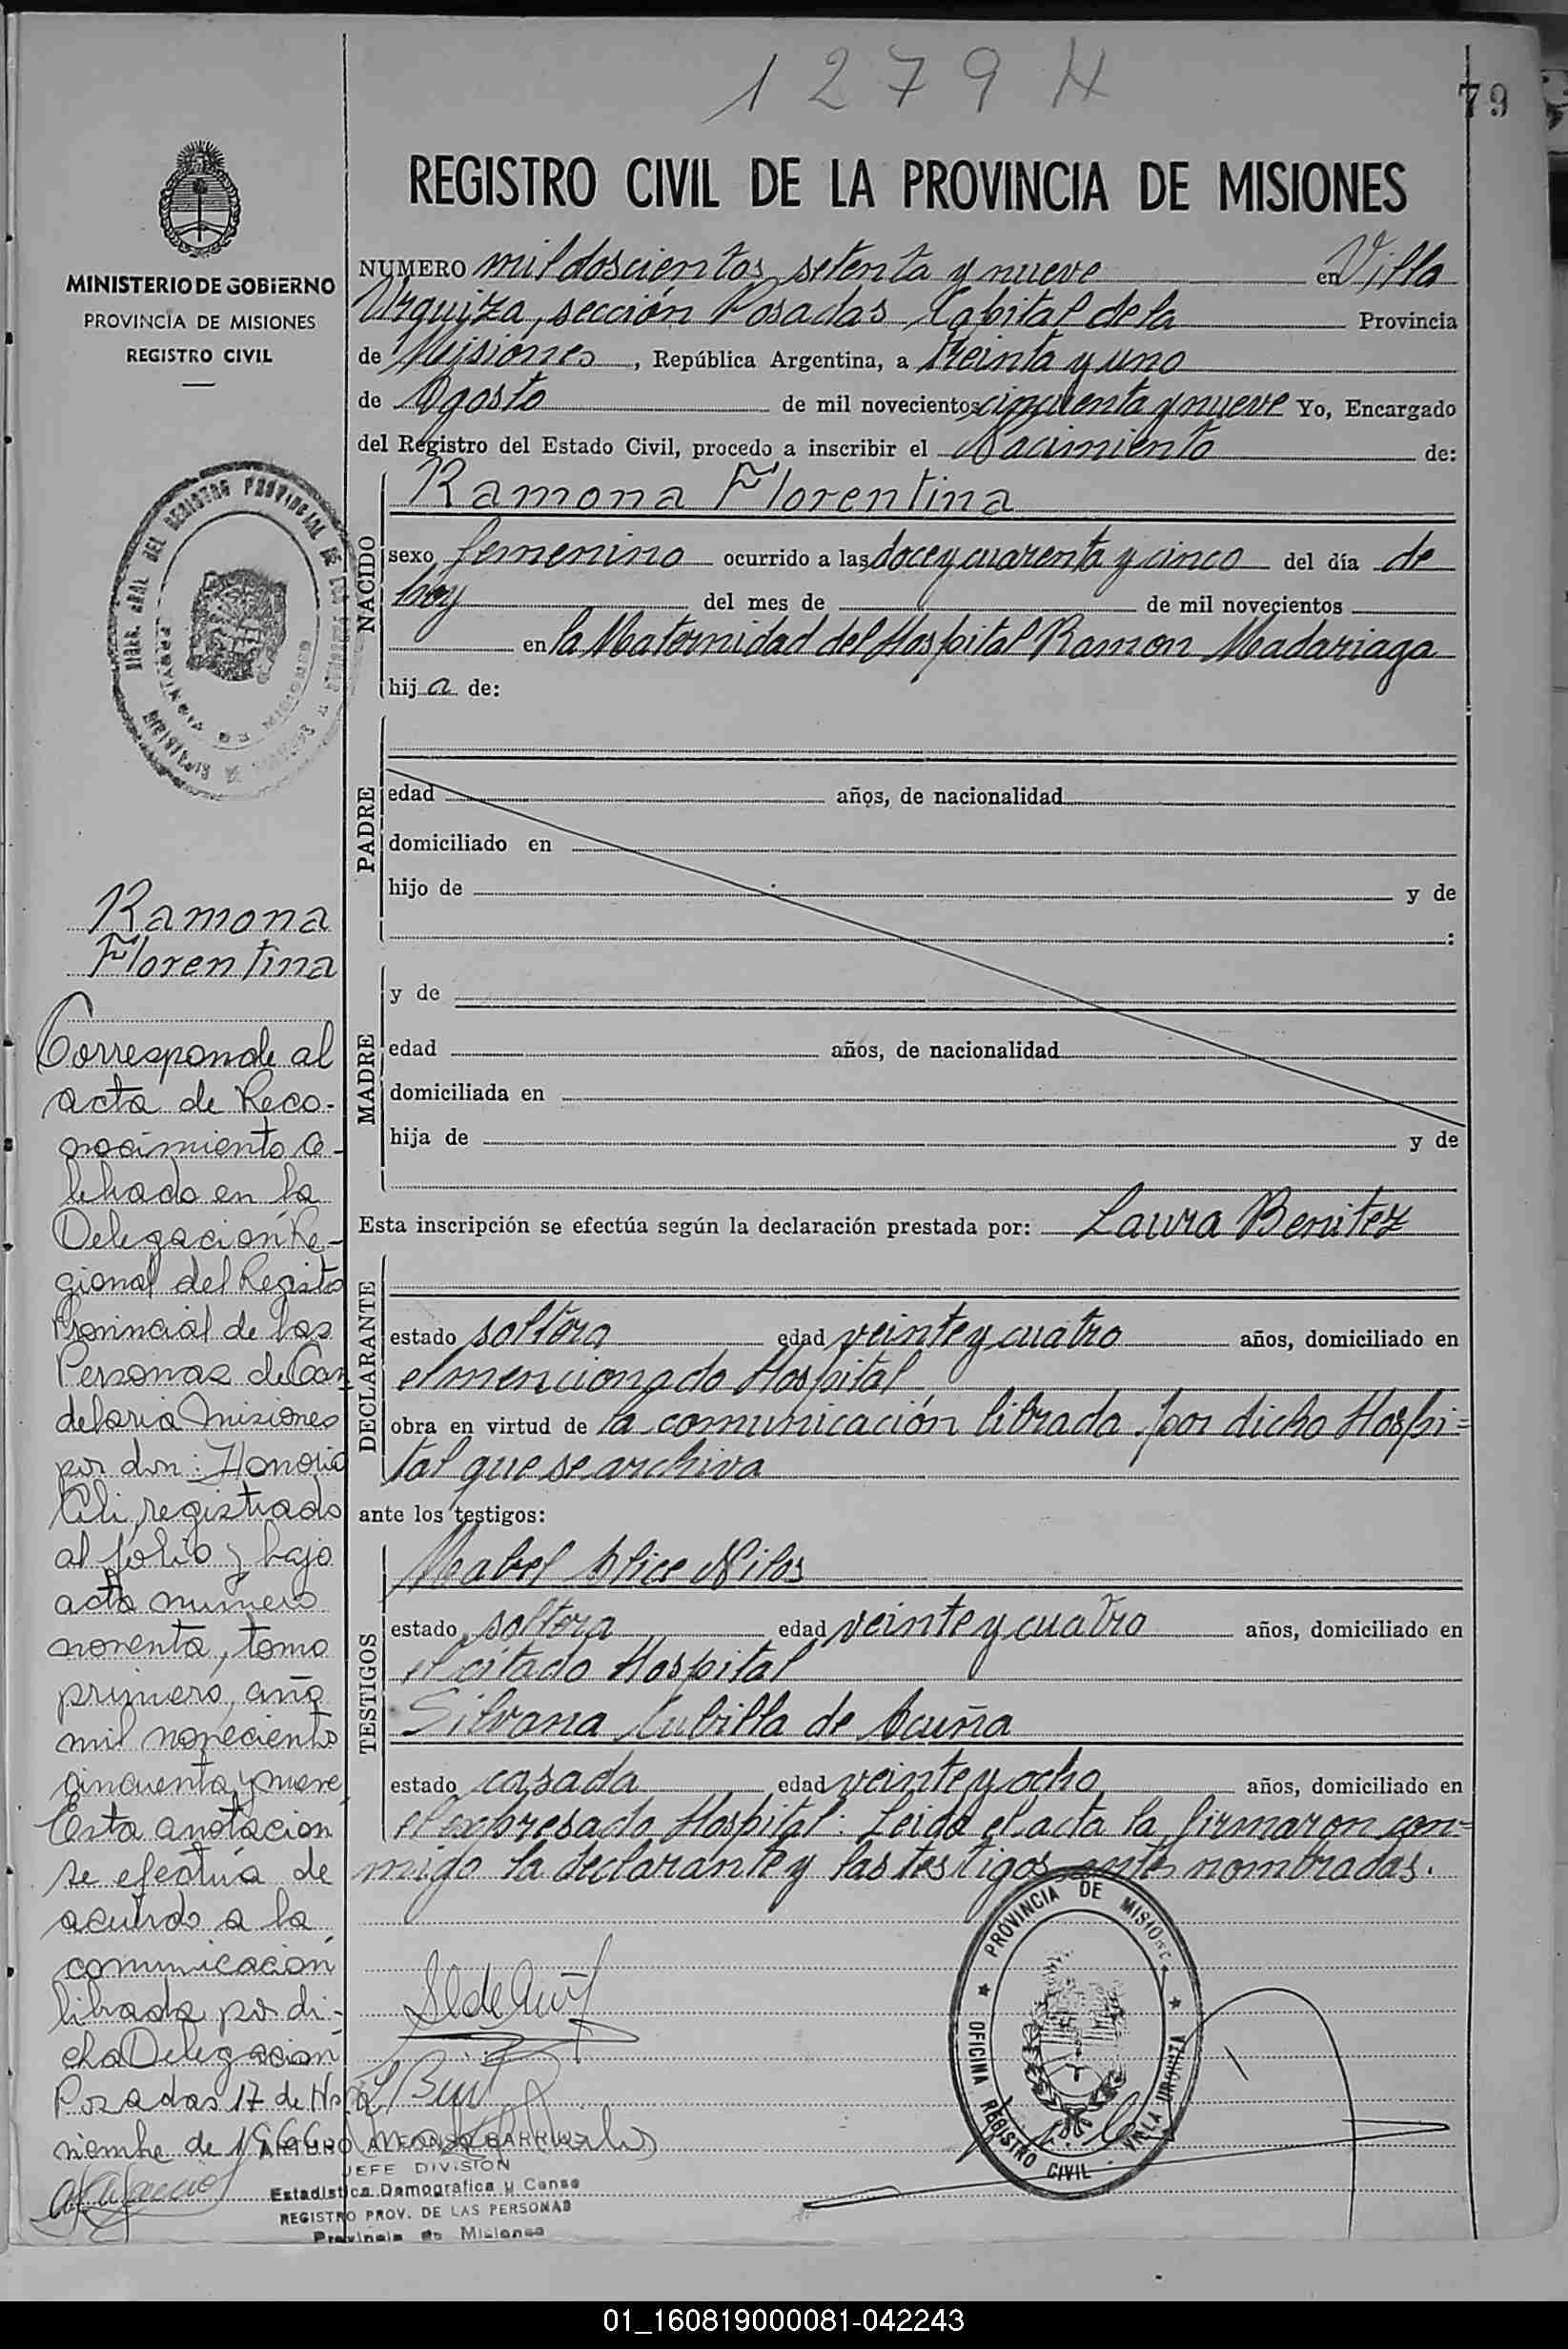 1279 H
79
REGISTRO CIVIL DE LA PROVINCIA DE MISIONES
MINISTERIO DE GOBIERNO
PROVINCIA DE MISIONES
REGISTRO CIVIL
NUMERO mil doscientos setenta y nueve en Villa
Urquiza, sección Posadas Capital de la Provincia
de Misiones, República Argentina, a treinta y uno
de Agosto de mil novecientos cincuenta y nueve Yo, Encargado
del Registro del Estado Civil, procedo a inscribir el Nacimiento de:
NACIDO
Ramona Florentina
sexo femenino ocurrido a las doce y cuarenta y cinco del día de
hoy del mes de de mil novecientos
en la Maternidad del Hospital Ramon Madariaga
hij a de:
PADRE
edad años, de nacionalidad
domiciliado en
hijo de y de
:
MADRE
y de
edad años, de nacionalidad
domiciliada en
hija de y de
Esta inscripción se efectúa según la declaración prestada por: Laura Benitez
DECLARANTE
estado soltera edad veinte y cuatro años, domiciliado en
el mencionado Hospital
obra en virtud de la comunicación librada por dicho Hospi=
tal que se archiva
ante los testigos:
TESTIGOS
Mabel Alice Nilos
estado soltera edad veinte y cuatro años, domiciliado en
el citado Hospital
Silvana Cubilla de Acuña
estado casada edad veinte y ocho años, domiciliado en
el expresado Hospital. Leida el acta la firmaron con=
migo la declarante y las testigos antes nombradas.
Ramona
Florentina
Corresponde al
acta de Reco-
nocimiento ce-
lebrado en la
Delegación Re-
gional del Registo
Provincial de las
Personas de Can
delaria Misiones
por don: Honorio
registrado
al folio y bajo
acta número
noventa, tomo
primero, año
mil novecientos
cincuenta y nueve
Esta anotación
se efectúa de
acuerdo a la
comunicación
librada por di-
cha Delegación
Posadas 17 de No
viembre de 1966
ARTURO ALFONSO BARRIOS
JEFE DIVISION
Estadistica Demografica y Censo
REGISTRO PROV. DE LAS PERSONAS
Provincia de Misiones
PROVINCIA DE MISIONES
OFICINA REGISTRO CIVIL VILLA URQUIZA
01_160819000081-042243